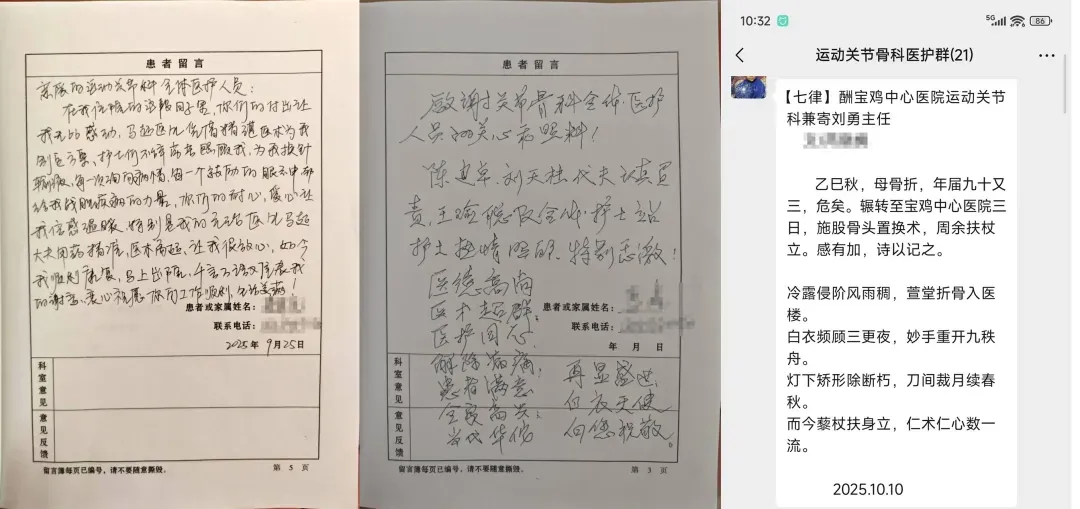 患者留言
亲爱的运动关节科全体医护人员：
在我住院的这段日子里，你们的付出让
我无的感动，马超医生凭借精湛医术为我
制定方案，护士们不辞劳苦照顾我，为我换针
输液，每一次询问病情，每一个鼓励的眼神中都
给我战胜疾病的力量，你们的耐心，爱心让
我倍感温暖，特别是我的主治医生马超
大夫用药精准，医术高超，让我很放心，如今
我顺利康复，马上出院，千言万语
的谢意，衷心祝愿你们工作顺利
患者或家属姓名：
联系电话：
2025年9月25日
科室意见
意见反馈
留言簿每页已编号，请不要随意撕毁。
第 5 页
患者留言
感谢关节骨科全体医护
人员的关心和照料！
陈建军、刘天社大夫认真负
责，王瑜聪及全体护士站
护士热情照顾，特别感激！
医德高尚
医术超群；
医护同心，
解除病痛；
患者满意
全家高兴；
当代华佗
再显盛世，
白衣天使
向您致敬。
患者或家属姓名：
联系电话：
年 月 日
科室意见
意见反馈
留言簿每页已编号，请不要随意撕毁。
第 3 页
10:32
5G
86
运动关节骨科医护群(21)
【七律】酬宝鸡中心医院运动关节
科兼寄刘勇主任
乙巳秋，母骨折，年届九十又
三，危矣。辗转至宝鸡中心医院三
日，施股骨头置换术，周余扶杖
立。感有加，诗以记之。
冷露侵阶风雨稠，萱堂折骨入医
楼。
白衣频顾三更夜，妙手重开九秩
舟。
灯下矫形除断朽，刀间裁月续春
秋。
而今藜杖扶身立，仁术仁心数一
流。
2025.10.10